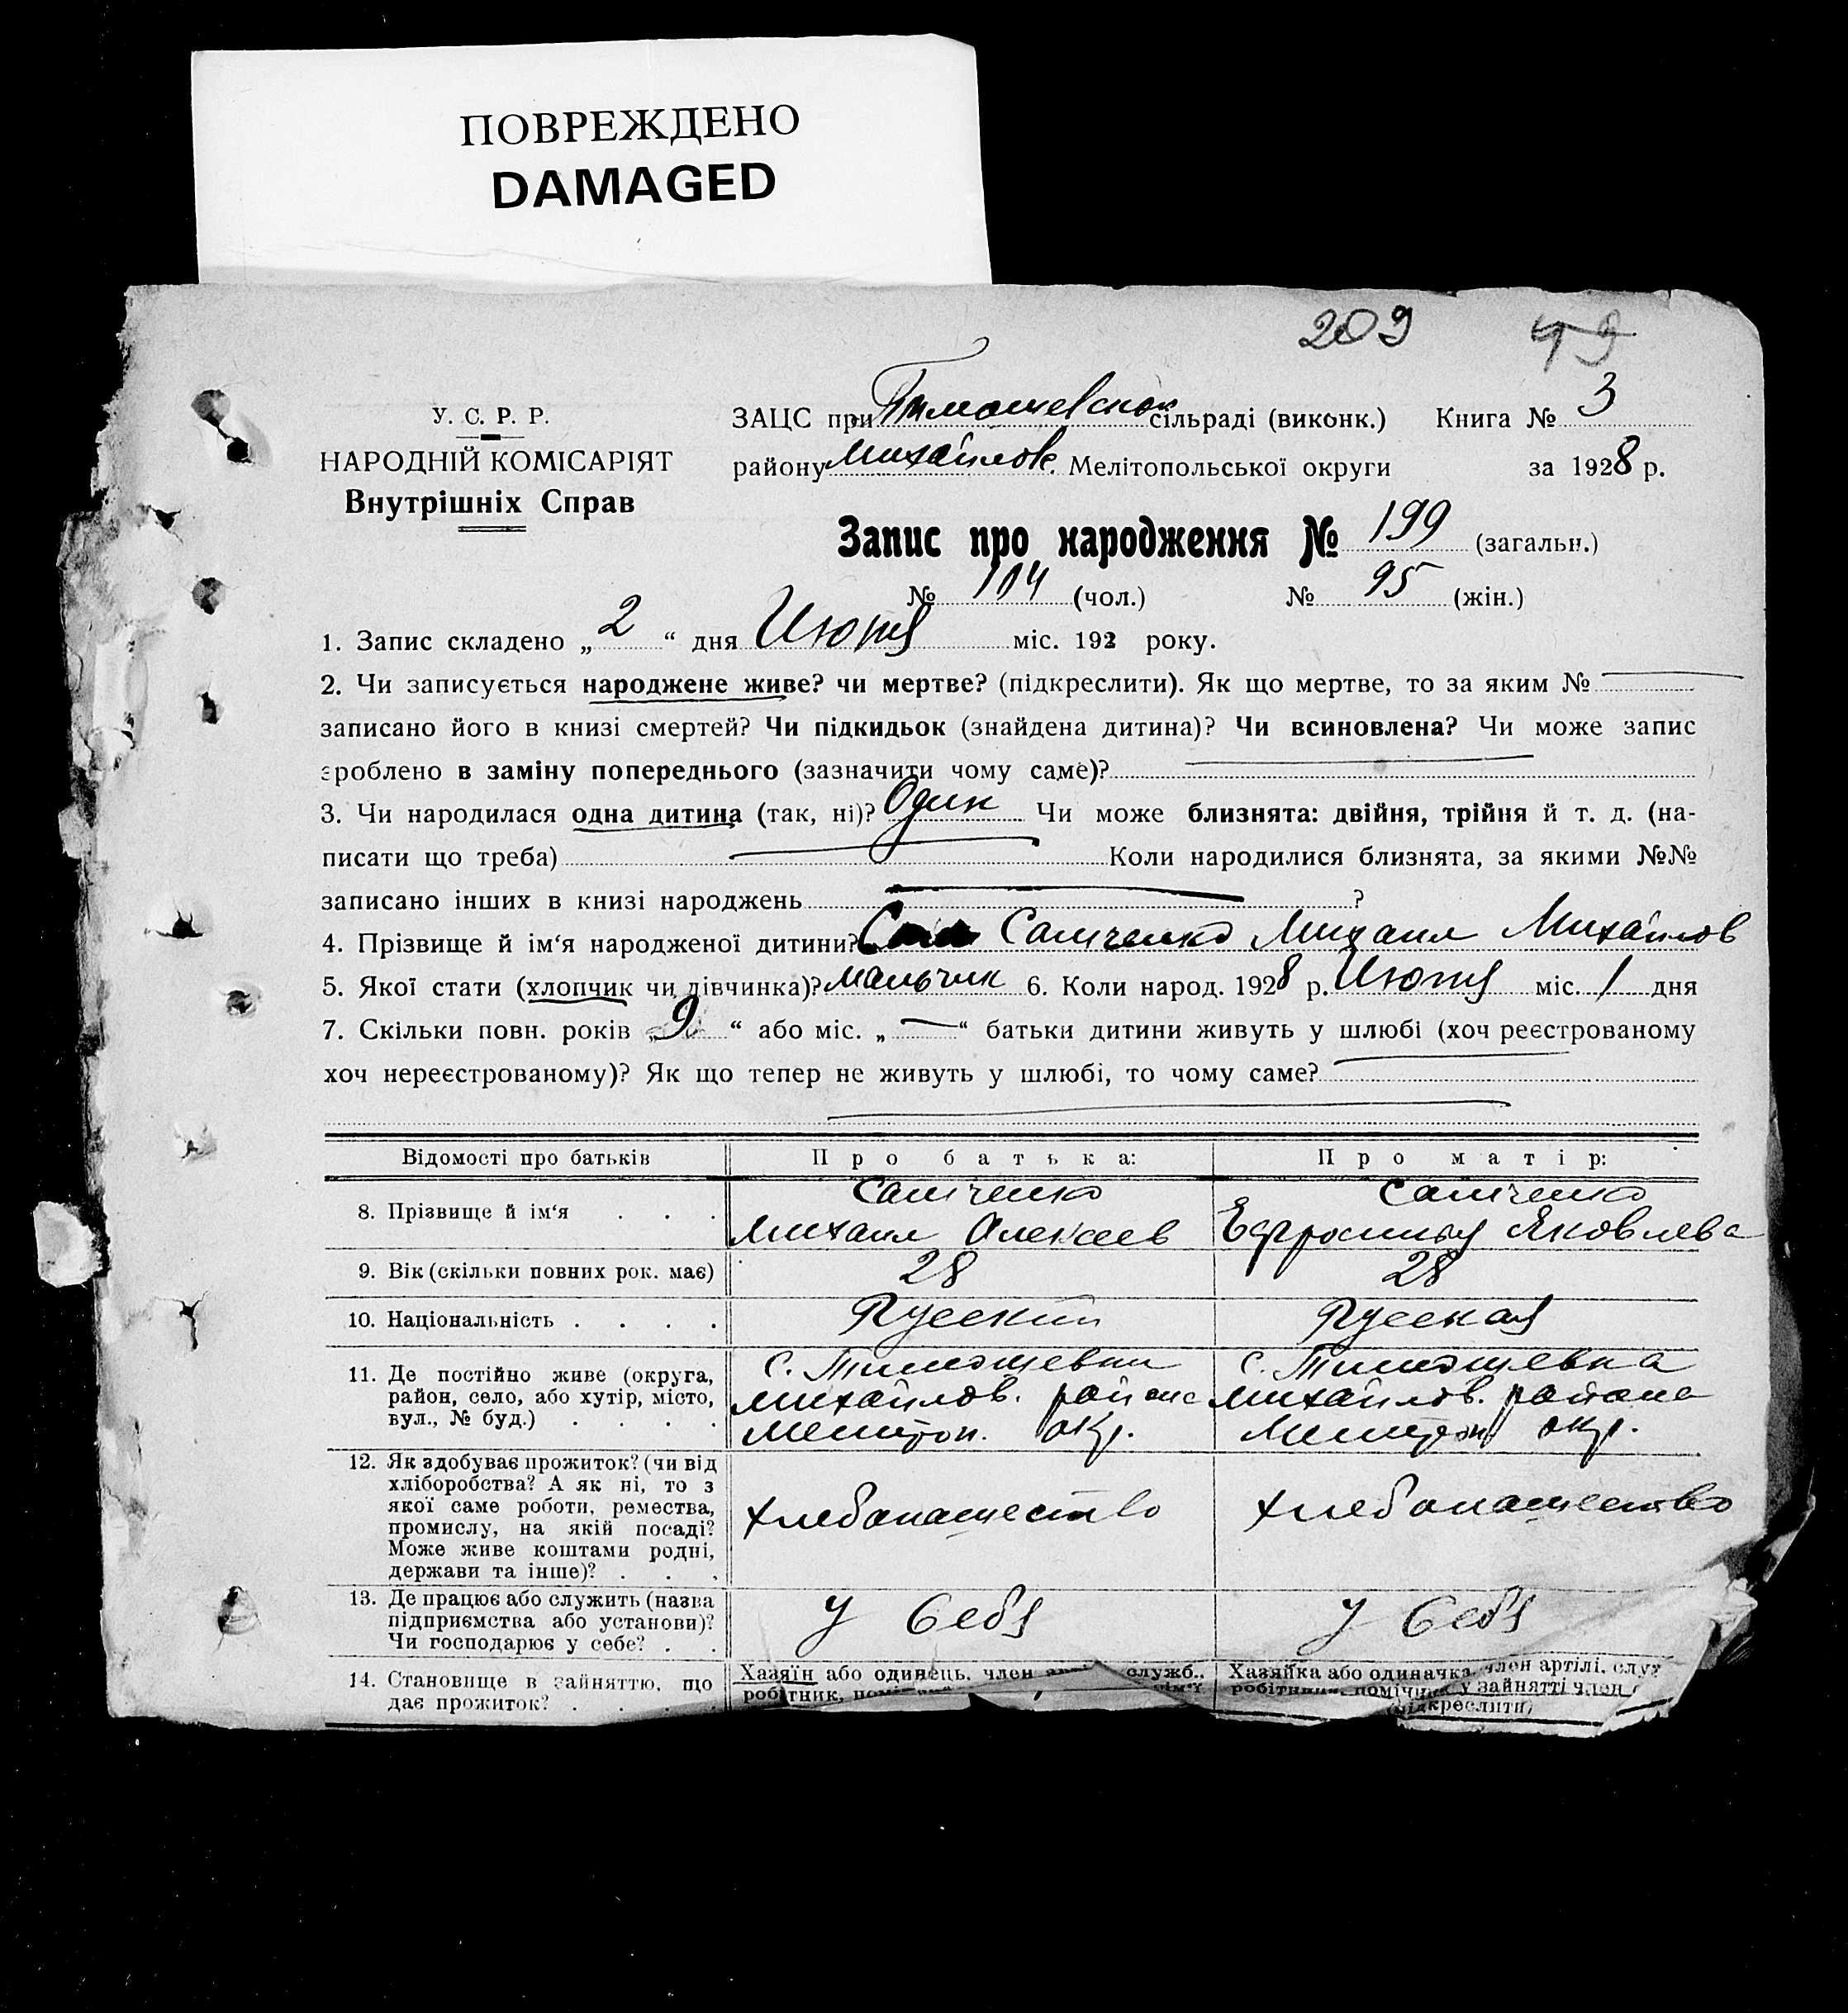 ПОВРЕЖДЕНО
DAMAGED
209 49
У. С. Р. Р.
НАРОДНІЙ КОМІСАРІЯТ
Внутрішніх Справ
ЗАЦС при Тимошевской сільраді (виконк.) Книга № 3
району Михайлов. Мелітопольської округи за 1928 р.
Запис про народження № 199 (загальн.)
№ 104 (чол.) № 95 (жін.)
1. Запис складено „ 2 “ дня міс. 192 року.
2. Чи записується народжене живе? чи мертве? (підкреслити). Як що мертве, то за яким №
записано його в книзі смертей? Чи підкидьок (знайдена дитина)? Чи всиновлена? Чи може запис
зроблено в заміну попереднього (зазначити чому саме)?
3. Чи народилася одна дитина (так, ні)? Один Чи може близнята: двійня, трійня й т. д. (на-
писати що треба) Коли народилися близнята, за якими №№
записано інших в книзі народжень ?
4. Прізвище й ім‘я народженої дитини? Михаил Михайлов
5. Якої стати (хлопчик чи дівчинка)? мальчик 6. Коли народ. 1928 р. міс. 1 дня
7. Скільки повн. років „ 9 “ або міс. „ — “ батьки дитини живуть у шлюбі (хоч реєстрованому
хоч нереєстрованому)? Як що тепер не живуть у шлюбі, то чому саме?
Відомості про батьків Про батька: Про матір:
8. Прізвище й ім‘я . . .
Михаил Алексеев Ефросинья Яковлева
9. Вік (скільки повних рок. має) 28 28
10. Національність . . . . Русский Русская
11. Де постійно живе (округа,
район, село, або хутір, місто,
вул., № буд.) . . . .
с. Тимошевки
Михайлов. района
Мелитоп. окр.
с. Тимошевка
Михайлов. района
Мелитоп окр.
12. Як здобуває прожиток? (чи від
хліборобства? А як ні, то з
якої саме роботи, ремества,
промислу, на якій посаді?
Може живе коштами родні,
держави та інше)? . . .
хлебопашество хлебопашество
13. Де працює або служить (назва
підприємства або установи)?
Чи господарює у себе? . .
у себя у себя
14. Становище в зайняттю, що
дає прожиток? . . . .
Хазяїн або одинець, член служб.,
робітник,
Хазяйка або одиначка, член артілі,
помічниця у зайнятті член